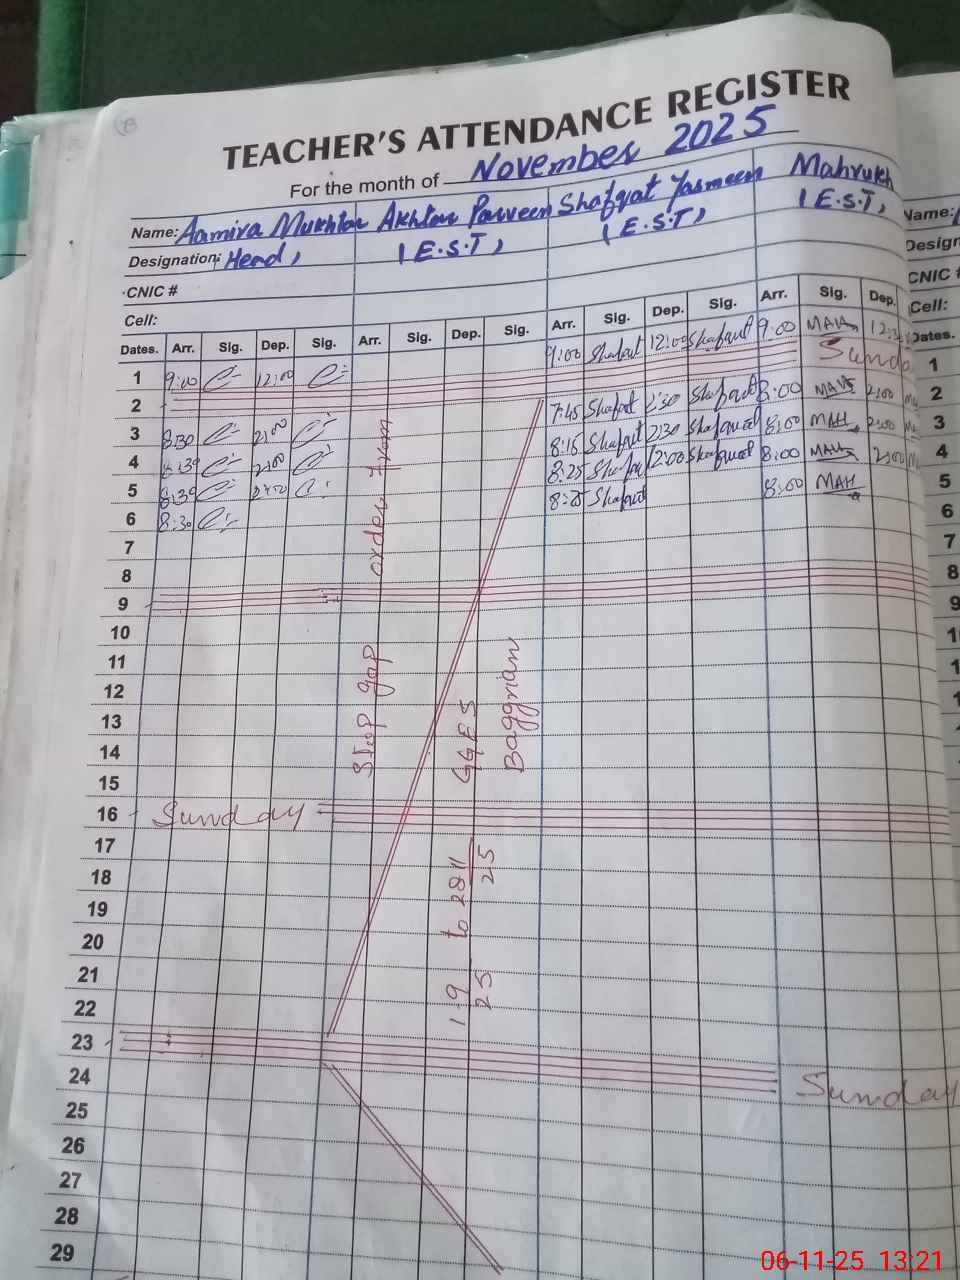 TEACHER'S ATTENDANCE REGISTER
For the month of November 2025
Name: Aamira Mukhtar Akhtar Parveen Shafqat Yasmeen Mahrukh Name:
Designation: Head, (E.S.T) (E.S.T) (E.S.T) Design
CNIC # CNIC #
Cell: Cell:
Dates. Arr. Sig. Dep. Sig. Arr. Sig. Dep. Sig. Arr. Sig. Dep. Sig. Arr. Sig. Dep. Dates.
1 9:00 12:00 9:00 Shafaut 12:00 Shafaut 9:00 MAH 1
2 Sunda 2
3 8:30 2:00 7:45 Shafaut 2:30 Shafaut 8:00 MAH 2:00 3
4 8:30 2:00 8:15 Shafaut 2:30 Shafaut 8:00 MAH 2:00 4
5 8:30 2:00 8:25 Shafau 2:00 Shafaut 8:00 MAH 2:00 5
6 8:30 Shafaut 8:00 MAH 6
7 7
8 8
9 9
10
11
12
13
14
15
16 Sunday
17
18
19
20
21
22
23 Sunday
24
25
26
27
28
29
Stop gap order from
GGES
Baggrian
1-9 25 to 28 11 25
06-11-25 13:21